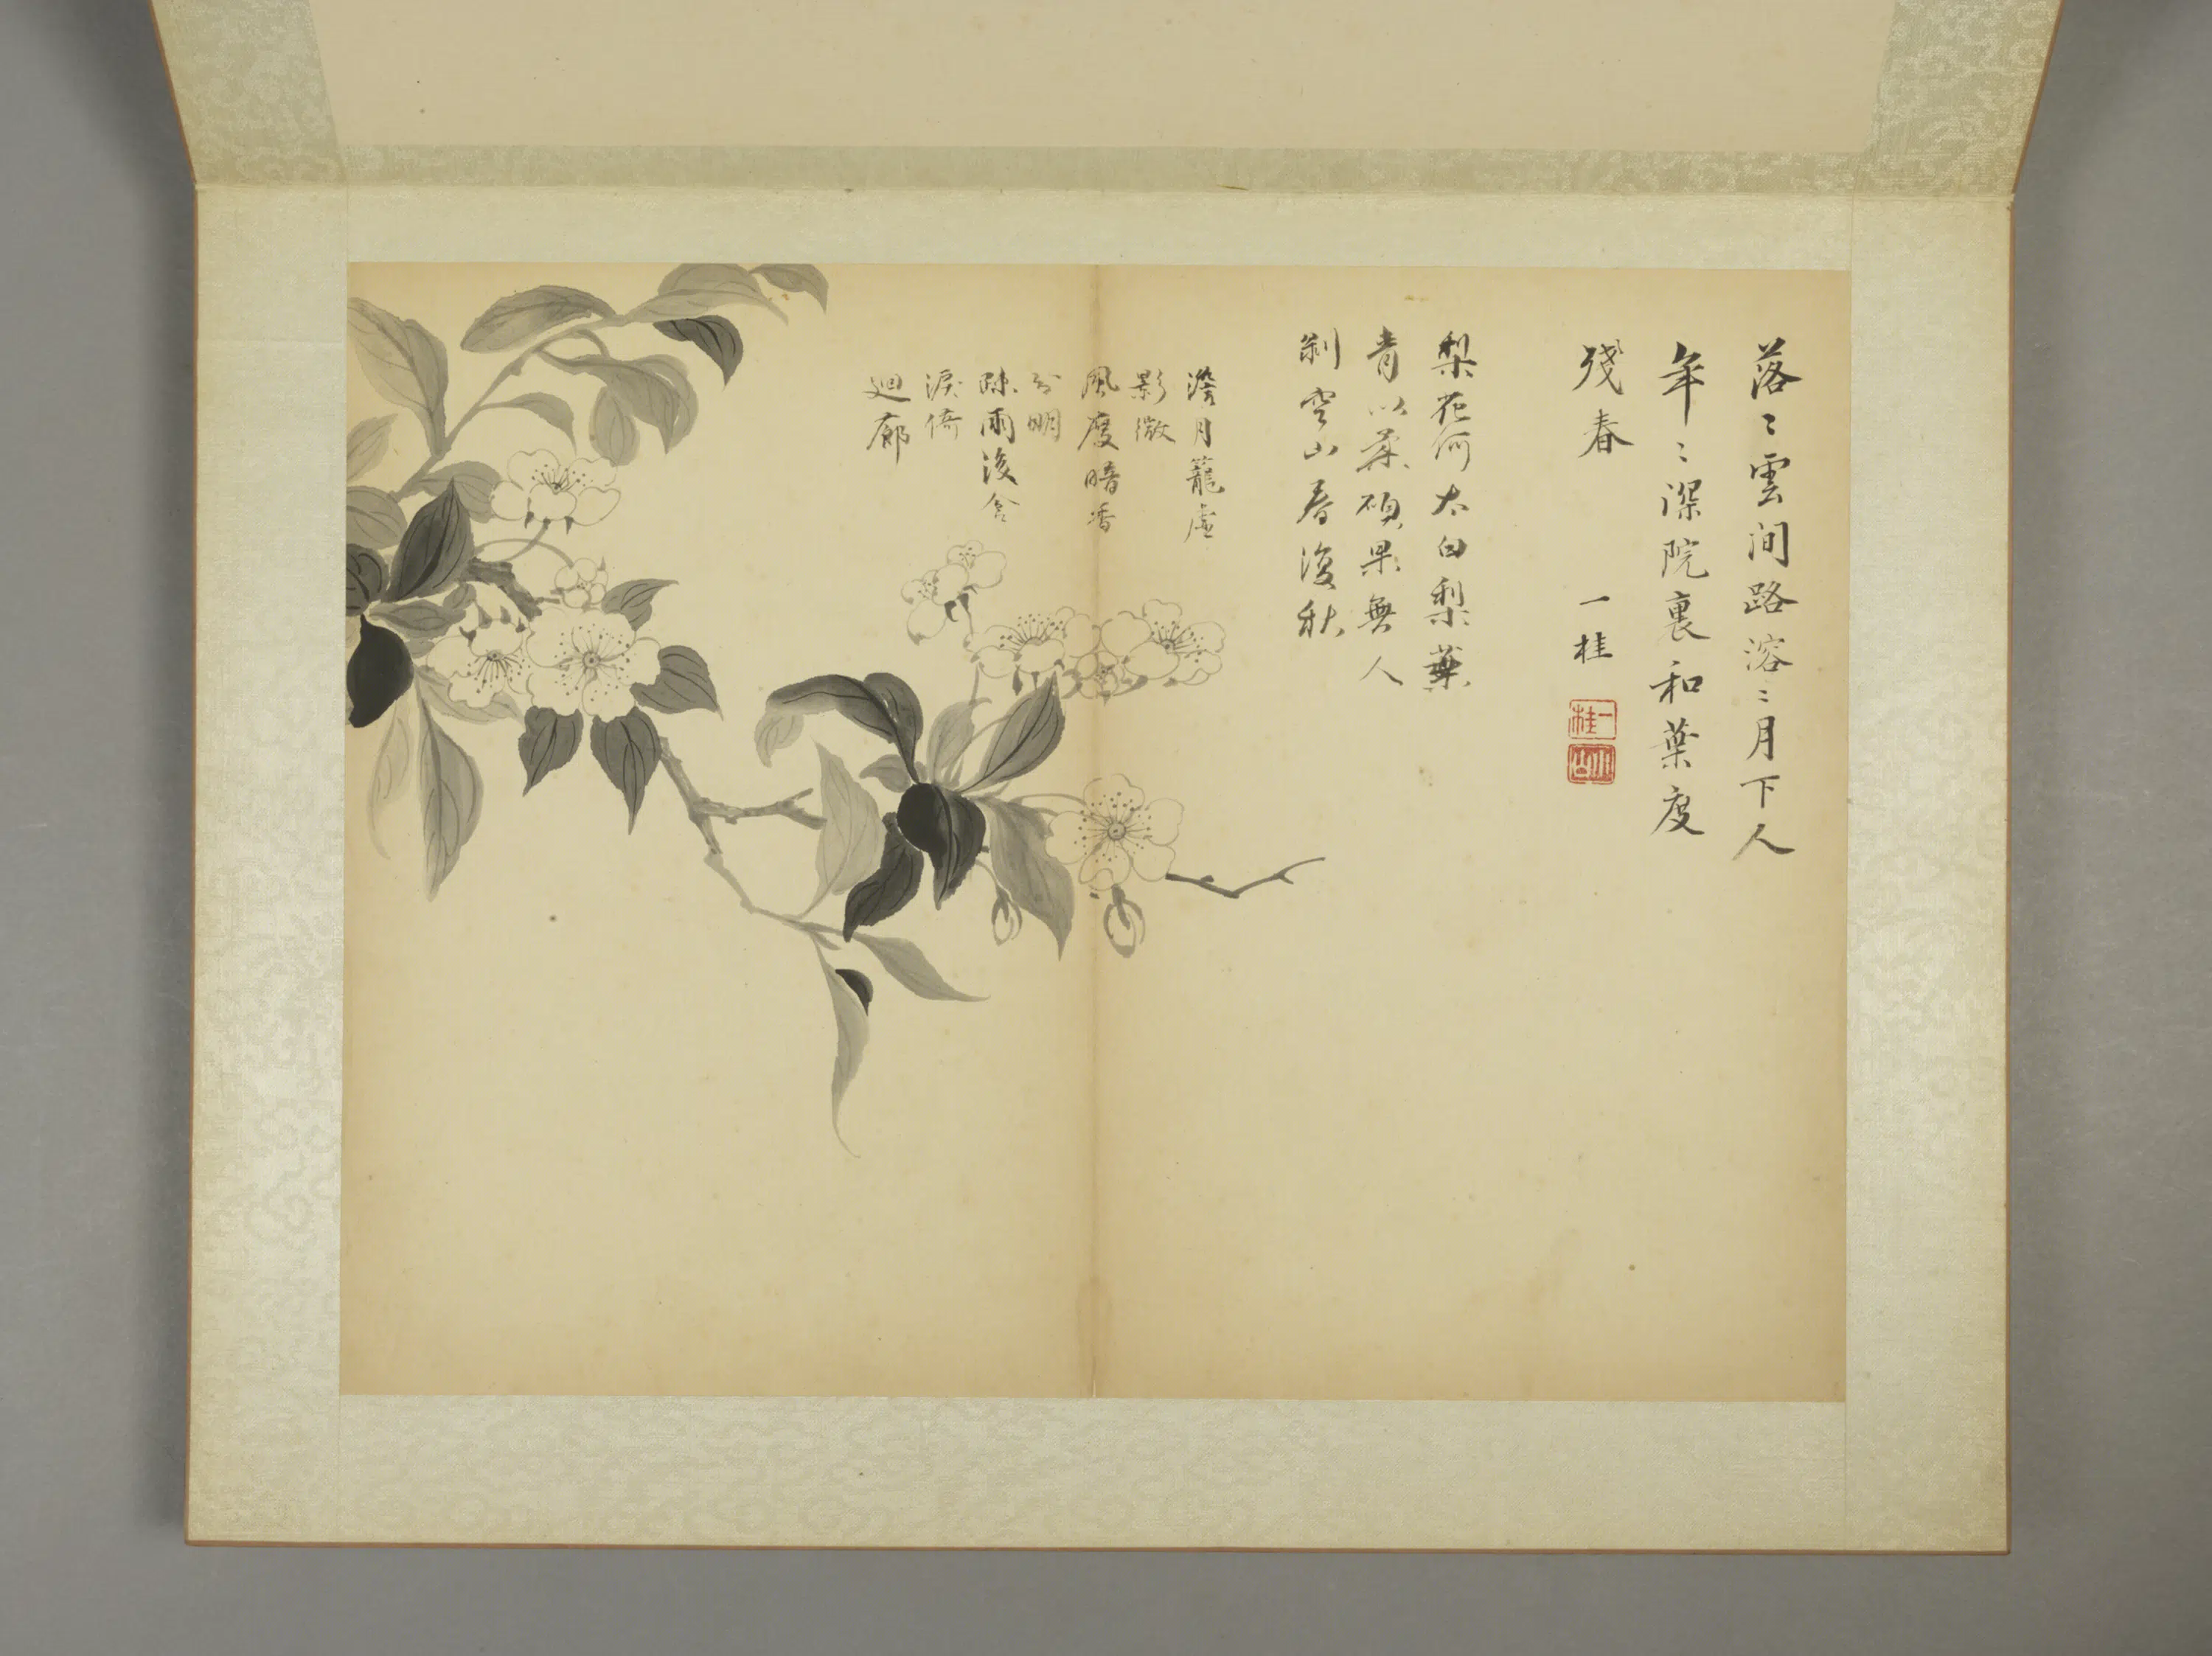 落〻雲间路溶〻月下人
年〻深院裏和葉度
残春
一桂
一桂
小山
梨花何太白梨葉
青以柔碩果無人
剥空山春復秋
澹月籠虚
影微
風度暗香
分明
疎雨後含
淚倚
迴廊